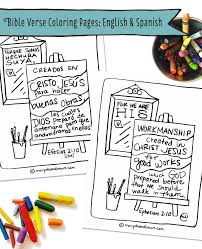 Bible Verse Coloring Pages: English & Spanish
HECHURA
SUYA
CREADOS EN
CRISTO JESÚS
para hacer
buenas Obras
las cuales
DIOS preparó de
antemano para que
Efesios 2:10
FOR WE ARE
HIS
WORKMANSHIP
created in
CHRIST JESUS
for
good Works
which GOD
prepared before
that We should
walk in them
Ephesians 2:10